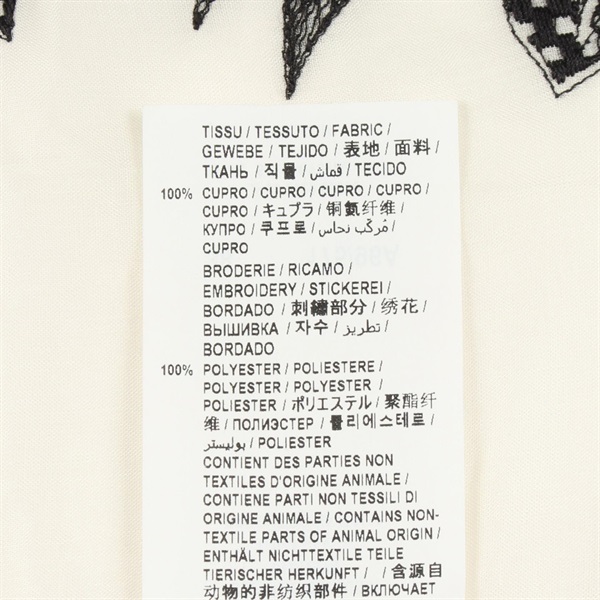 TISSU / TESSUTO / FABRIC /
GEWEBE / TEJIDO / 表地 / 面料 /
ТКАНЬ / 직물 / قماش / TECIDO
100% CUPRO / CUPRO / CUPRO / CUPRO /
CUPRO / キュプラ / 铜氨纤维 /
КУПРО / 쿠프로 / مُركّب نحاس /
CUPRO
BRODERIE / RICAMO /
EMBROIDERY / STICKEREI /
BORDADO / 刺繡部分 / 绣花 /
ВЫШИВКА / 자수 / تطريز /
BORDADO
100% POLYESTER / POLIESTERE /
POLYESTER / POLYESTER /
POLIESTER / ポリエステル / 聚酯纤
维 / ПОЛИЭСТЕР / 폴리에스테르 /
بوليستر / POLIESTER
CONTIENT DES PARTIES NON
TEXTILES D'ORIGINE ANIMALE /
CONTIENE PARTI NON TESSILI DI
ORIGINE ANIMALE / CONTAINS NON-
TEXTILE PARTS OF ANIMAL ORIGIN /
ENTHÄLT NICHTTEXTILE TEILE
TIERISCHER HERKUNFT / / 含源自
动物的非纺织部件 / ВКЛЮЧАЕТ